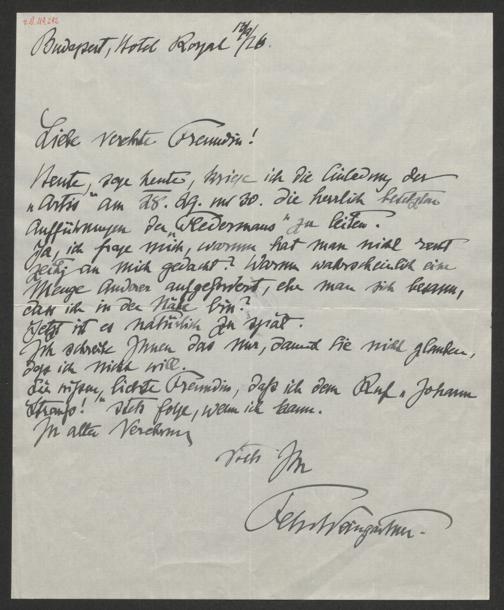 Budapest, Hotel Royal /26.
Liebe verehrte Freundin!
Heute, sage heute, kriege ich die Einladung der
"Artis" am 28. 29. und 30. die herrlich besetzten
Aufführungen der "Fledermaus" zu leiten.
Ja, ich frage mich, warum hat man nicht recht
zeitig an mich gedacht? Warum wahrscheinlich eine
Menge Anderer aufgefordert, ehe man sich besann,
dass ich in der Nähe bin?
Jetzt ist es natürlich zu spät.
Ich schreibe Ihnen das nur, damit Sie nicht glauben,
dass ich nicht will.
Sie wissen, liebste Freundin, dass ich dem Ruf "Johann
Strauss!" stets folge, wenn ich kann.
In alter Verehrung
stets Ihr
Felix Weingartner.